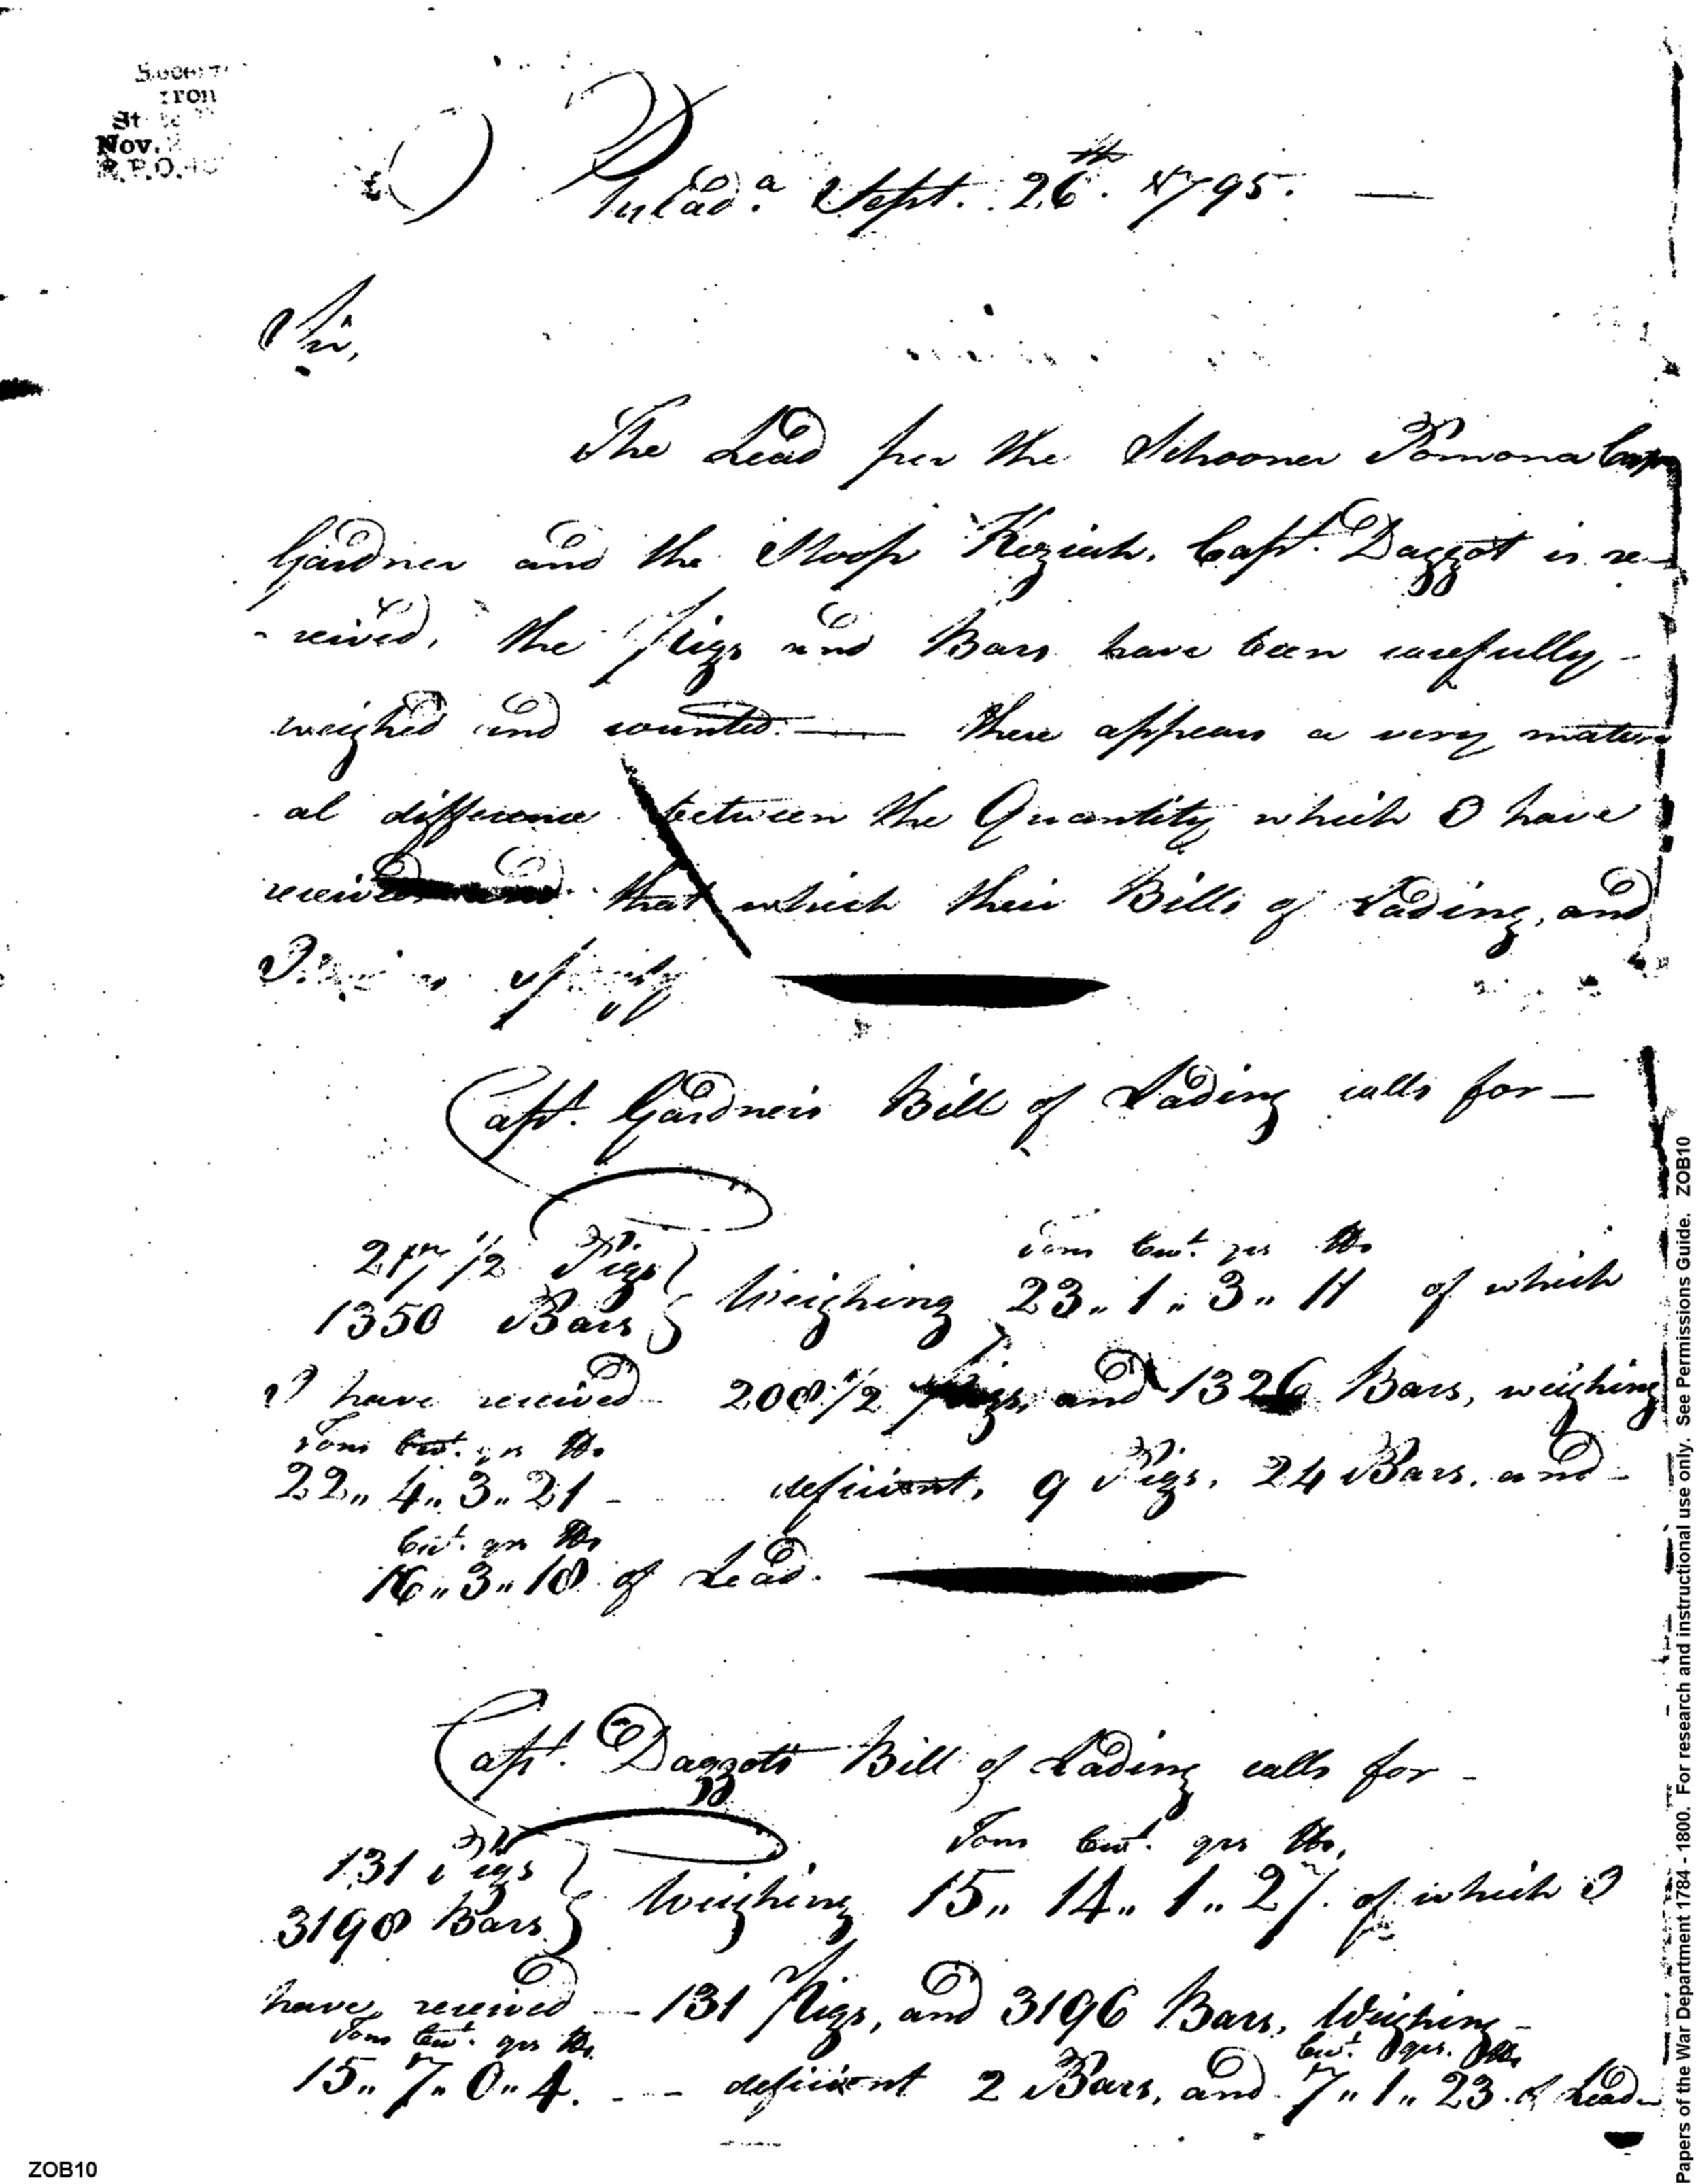 Nov.
Philad.a Sept. 26th. 1795. —
Sir,
The Lead per the Schooner Pomona Capt
Gardner and the Sloop Keziah, Capt. Daggot is re-
-ceived, the Pigs and Bars have been carefully
weighed and counted. — there appears a very materi
-al difference between the Quantity which I have
received and that which their Bills of Lading, and
Capt. Gardners Bill of Lading calls for —
Tons Cwt. qrs lbs
217 1/2 Pigs
1350 Bars } Weighing 23.. 1.. 3.. 11 of which
I have received 208 1/2 pigs, and 1326 Bars, weighing
Tons Cwt. qrs lbs
22.. 4.. 3.. 21 - deficient, 9 Pigs, 24 Bars, and -
Cwt. qrs lbs
16.. 3.. 18 of Lead.
Capt. Daggots Bill of Lading calls for -
Tons Cwt. qrs lbs,
131 Pigs
3198 Bars } Weighing 15.. 14.. 1.. 27. of which I
have received — 131 Pigs, and 3196 Bars, Weighing -
Tons Cwt. qrs lbs Cwt. qrs. lbs
15.. 7.. 0.. 4. - - - deficient 2 Bars, and 7.. 1.. 23. of Lead -
ZOB10
Papers of the War Department 1784 - 1800. For research and instructional use only. See Permissions Guide. ZOB10